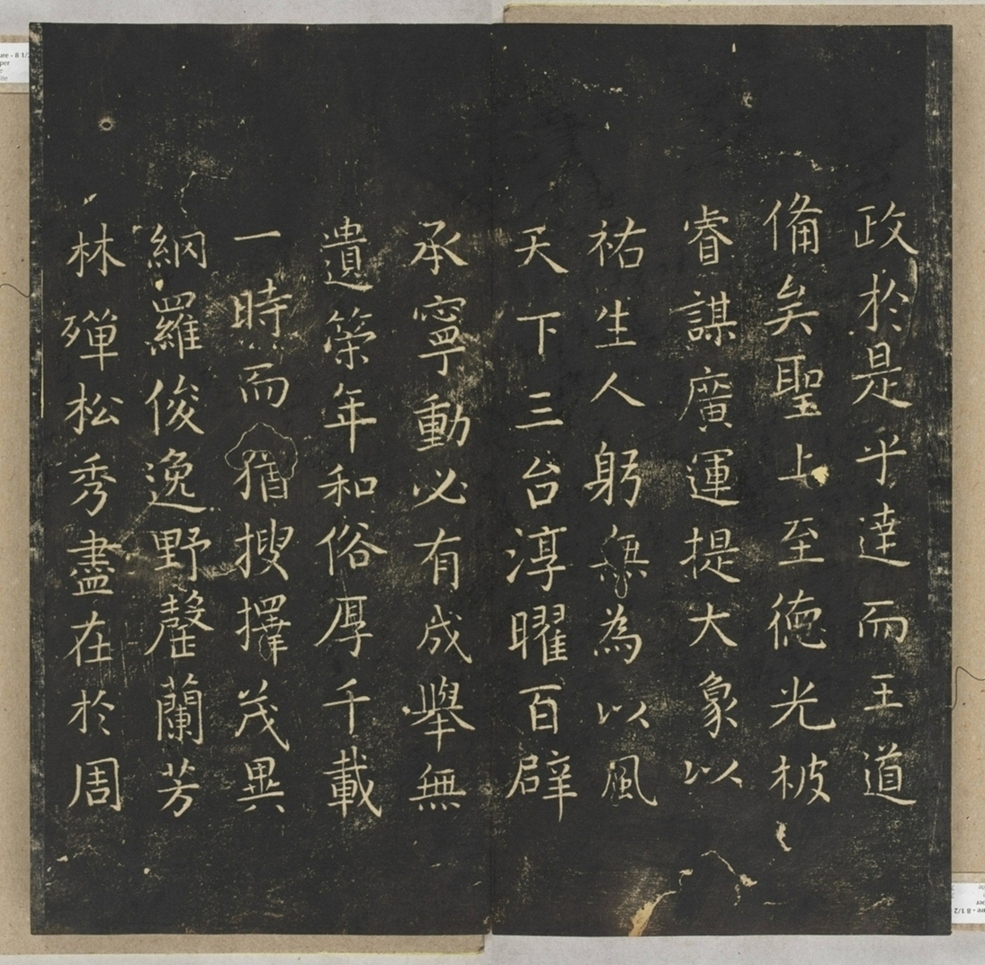 政於是乎達而王道
備矣聖上至德光被
睿謀廣運提大象以
祐生人躬無為以風
天下三台淳曜百辟
承寧動必有成舉無
遺策年和俗厚千載
一時而猶搜擇茂異
網羅俊逸野罄蘭芳
林殫松秀盡在於周